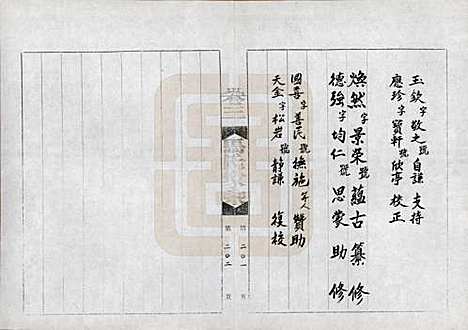 玉欽字敬之號自謙 支持
應珍字寶軒號欣亭 校正
煥然字景榮號蘊古 纂修
德強字均仁號思蒙 助修
國喜字善民號撫施 等人 贊助
天金字松岩號靜謙 復校
卷三
第二〇一頁
第二〇二頁